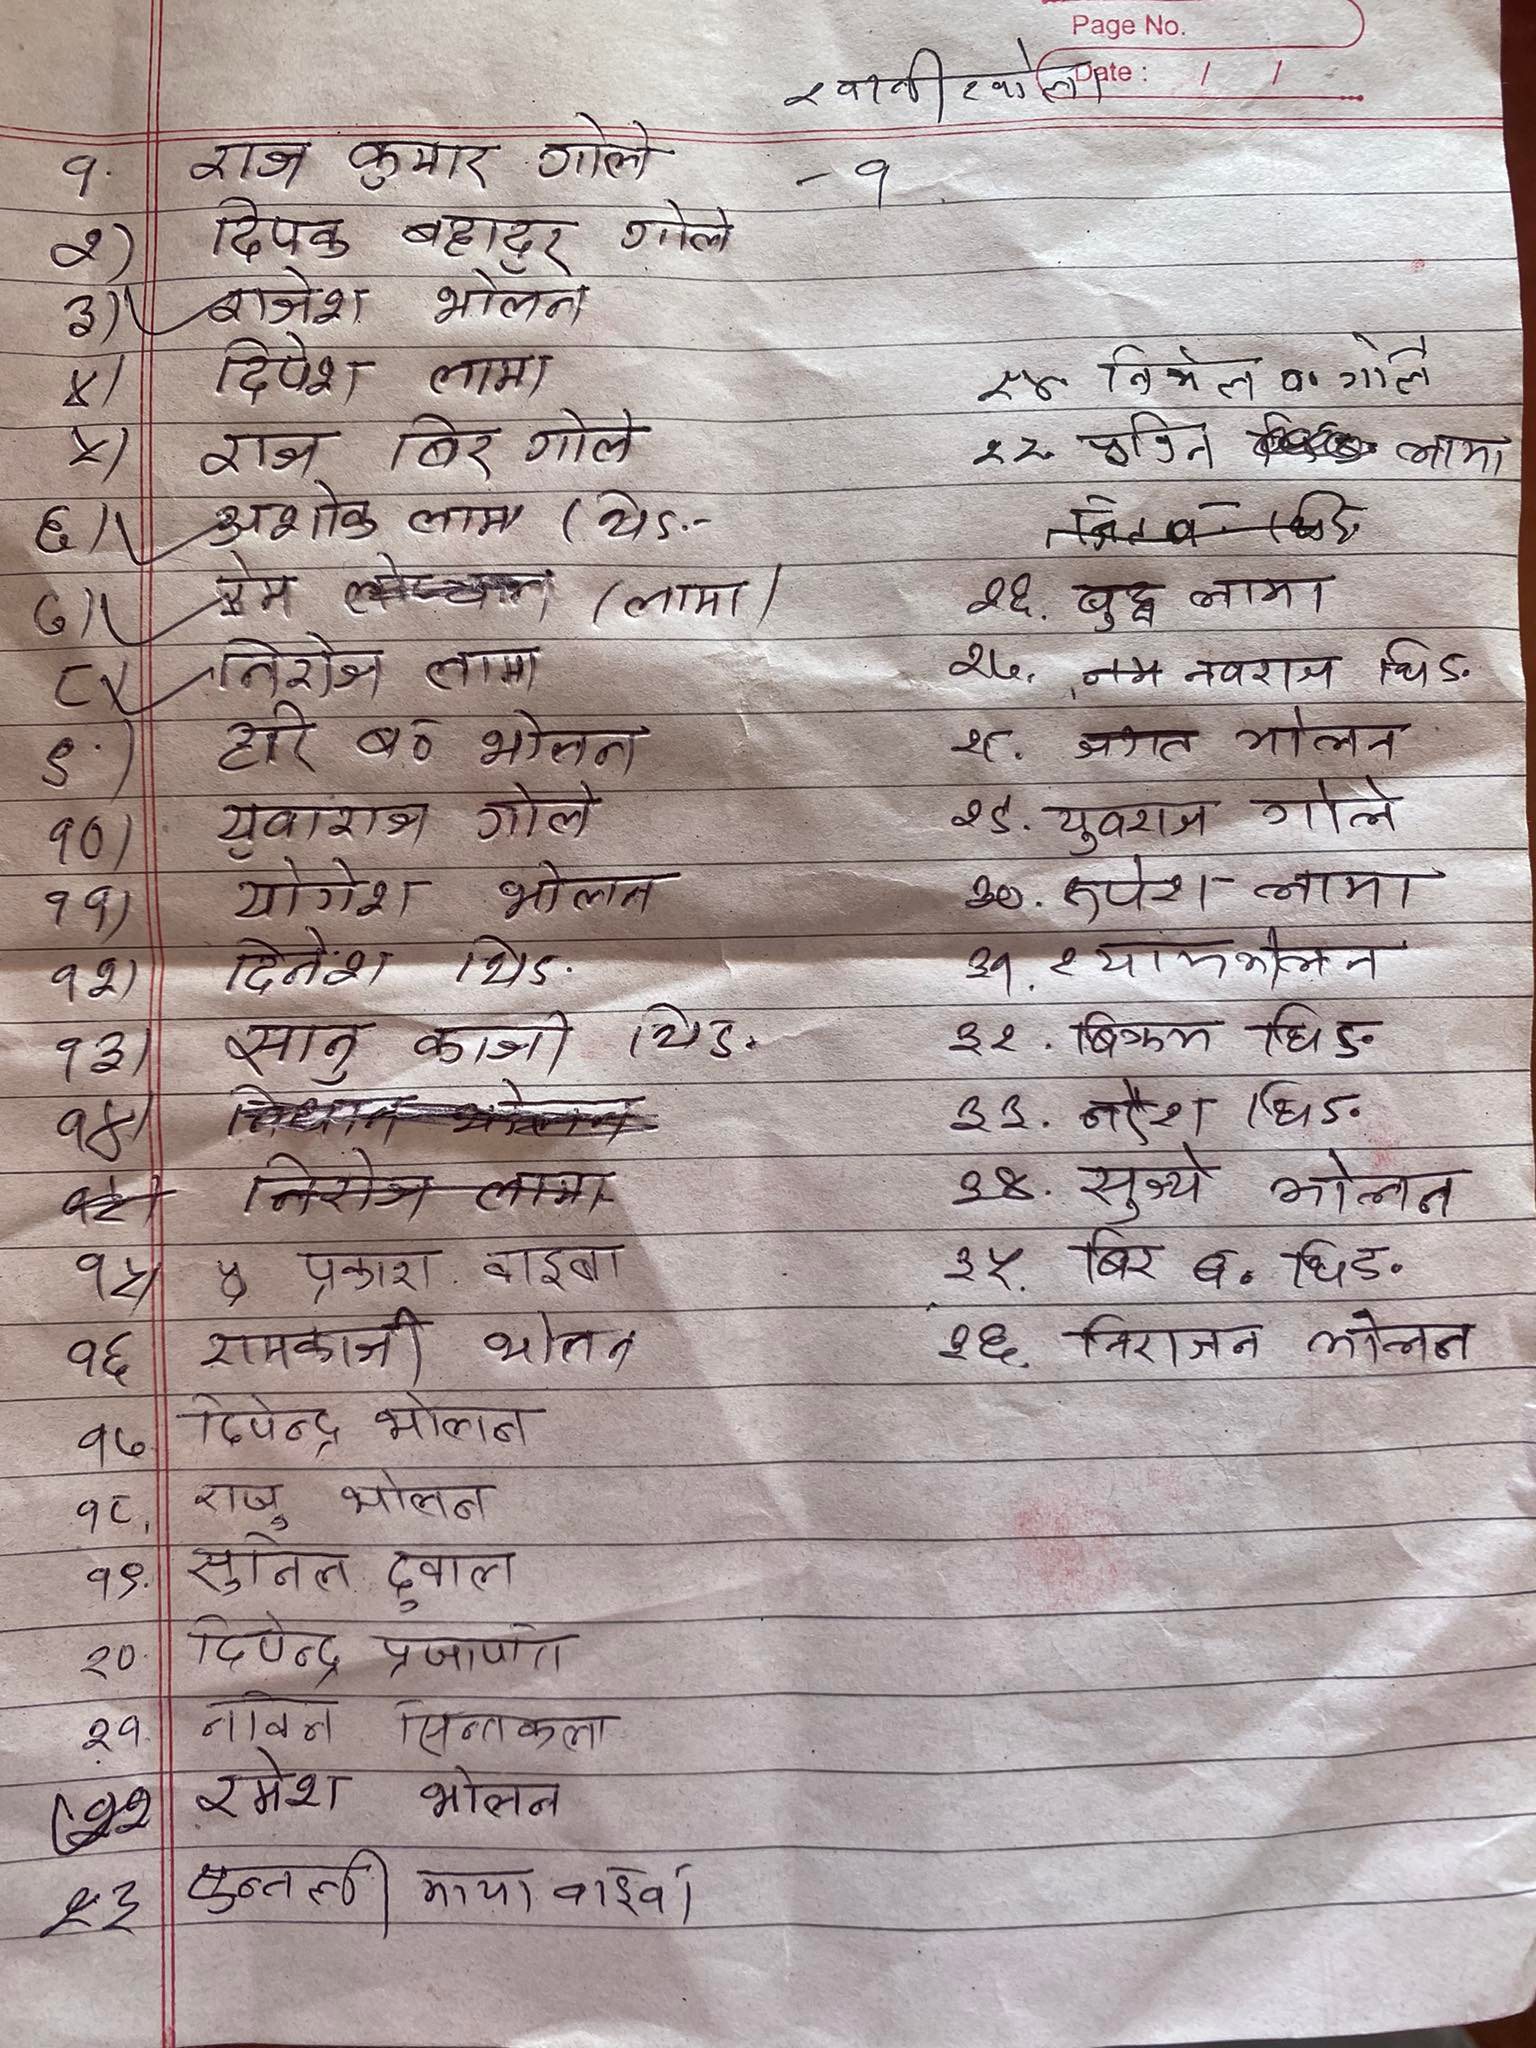 Page No.
Date : / /
१. राज कुमार गोले - १
२) दिपक बहादुर गोले
३) राजेश भोलन
४) दिपेश लामा
५) राज बिर गोले
६) अशोक लामा (थिङ.-
७) प्रेम (लामा)
८) निरोज लामा
९.) हरि ब० भोलन
१०) युवाराज गोले
११) योगेश भोलन
१२) दिनेश थिङ.
१३) सानु काजी थिङ.
१४)
निरोज लामा
१५ प्रकाश वाइबा
१६ रामकाजी भोलन
१७ दिपेन्द्र भोलन
१८. राजु भोलन
१९. सुनिल दुवाल
२०. दिपेन्द्र प्रजापति
२१. नविन सिन्तकला
२२ रमेश भोलन
२३ माया वाइबा
२४. ब० गोले
२५. लामा
२६. बुद्ध लामा
२७. नवराज घिङ.
२८. जगत भोलन
२९. युवराज गोले
३०. रुपेश लामा
३१. श्याम भोलन
३२. बिक्रम घिङ.
३३. नरेश घिङ.
३४. सुर्ज्य भोलन
३५. बिर ब. घिङ.
३६. निराजन भोलन